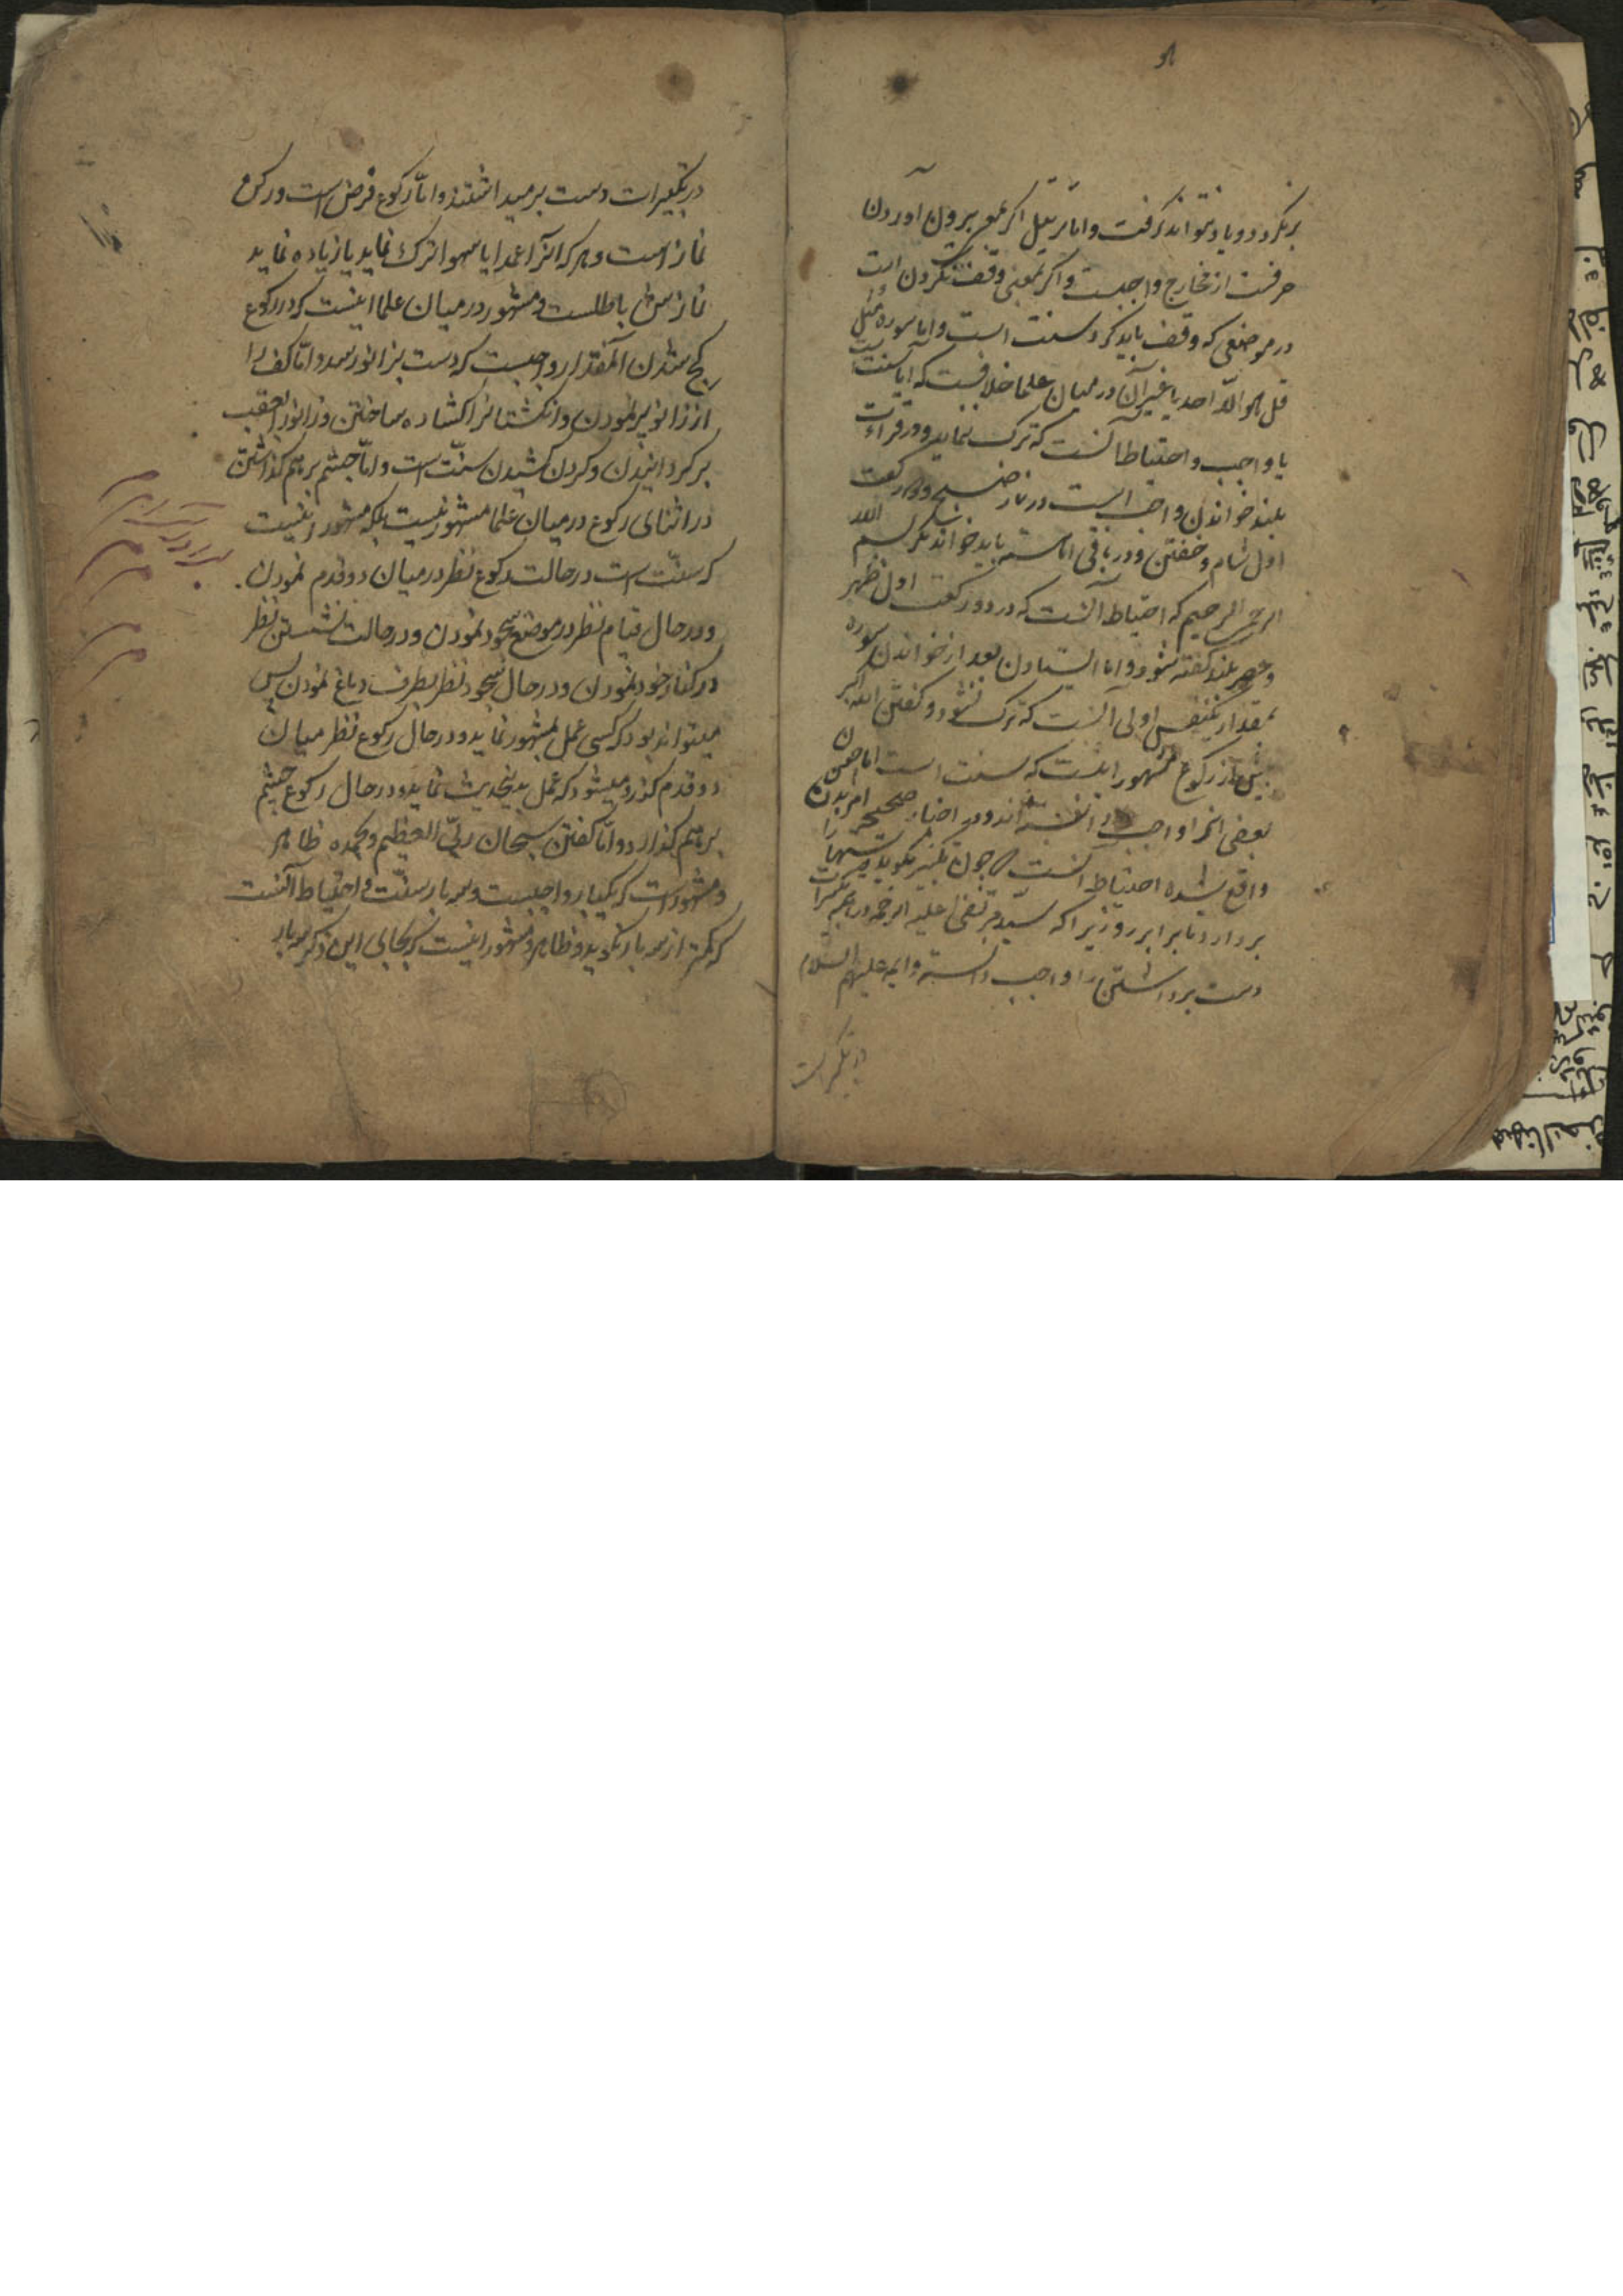 برنگردد و یاد نتواند گرفت و اما ترتیل اگر بمعنی بیرون آوردن
حرفست از مخارج واجبست و اگر بمعنی وقف نکردن است
در موضعی که وقف باید کرد سنت است و اما سوره مثل
قل هو الله احد یا غیر آن در میان علما خلافست که آیا سنت است
یا واجب و احتیاط آنست که ترک ننماید و در قراءت
بلند خواندن واجب است در نماز صبح و دو رکعت
اول شام و خفتن و در باقی آهسته باید خواند مگر بسم الله
الرحمن الرحیم که احتیاط آنست که در دو رکعت اول ظهر
و عصر بلند گفته شود و اما ایستادن بعد از خواندن سوره
بمقدار یکنفس اولی آنست که ترک نشود و گفتن الله اکبر
پیش از رکوع مشهور اینست که سنت است اما چون
بعضی آنرا واجب دانسته اند و در اخبار صحیحه امر بدان
واقع شده احتیاط آنست چون تکبیر بگوید دستها را
بردارد تا برابر رو زیرا که سید مرتضی علیه الرحمه در همه تکبیرات
دست برداشتن را واجب دانسته و ایمه علیهم السلام
در تکبیرات
در تکبیرات دست برمیداشتند و اما رکوع فرض است و رکن
نماز است و هر که آنرا عمدا یا سهوا ترک نماید یا زیاده نماید
نمازش باطلست و مشهور در میان علما اینست که در رکوع
کج شدن آنمقدار واجبست که دست بزانو رسد و اما کف را
از زانو پر نمودن و انگشتانرا گشاده ساختن و زانو را بعقب
برگردانیدن و گردن کشیدن سنت است و اما چشم برهم گذاشتن
در اثنای رکوع در میان علما مشهور نیست بلکه مشهور اینست
که سنت است در حالت رکوع نظر در میان دو قدم نمودن.
و در حال قیام نظر در موضع سجود نمودن و در حالت نشستن نظر
در کنار خود نمودن و در حال سجود نظر بطرف دماغ نمودن پس
میتواند بود که کسی عمل بمشهور نماید و در حال رکوع نظر میان
دو قدم کند و میشود که عمل بدینحدیث نماید و در حال رکوع چشم
بر هم گذارد و اما گفتن سبحان ربی العظیم و بحمده ظاهر
و مشهور است که یکبار واجبست و سه بار سنت و احتیاط آنست
که کمتر از سه بار نگوید و ظاهر و مشهور اینست که بجای این ذکر سه بار